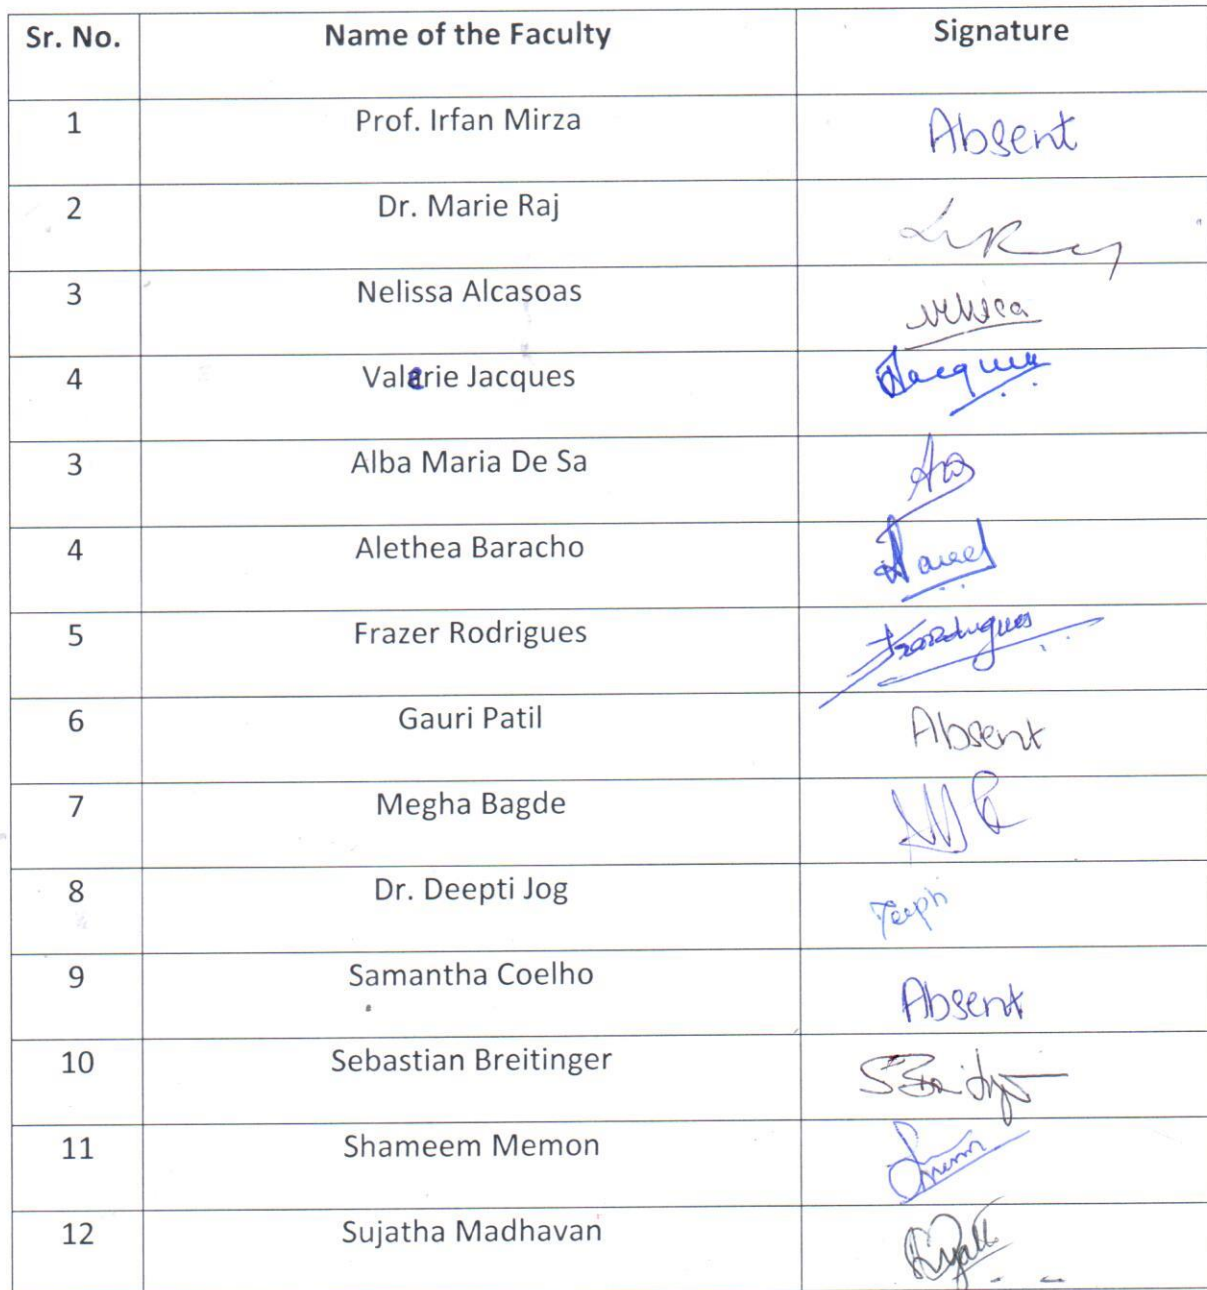 Sr. No. Name of the Faculty Signature
1 Prof. Irfan Mirza Absent
2 Dr. Marie Raj
3 Nelissa Alcasoas
4 Valerie Jacques Jacques
3 Alba Maria De Sa
4 Alethea Baracho
5 Frazer Rodrigues
6 Gauri Patil Absent
7 Megha Bagde
8 Dr. Deepti Jog
9 Samantha Coelho Absent
10 Sebastian Breitinger
11 Shameem Memon
12 Sujatha Madhavan